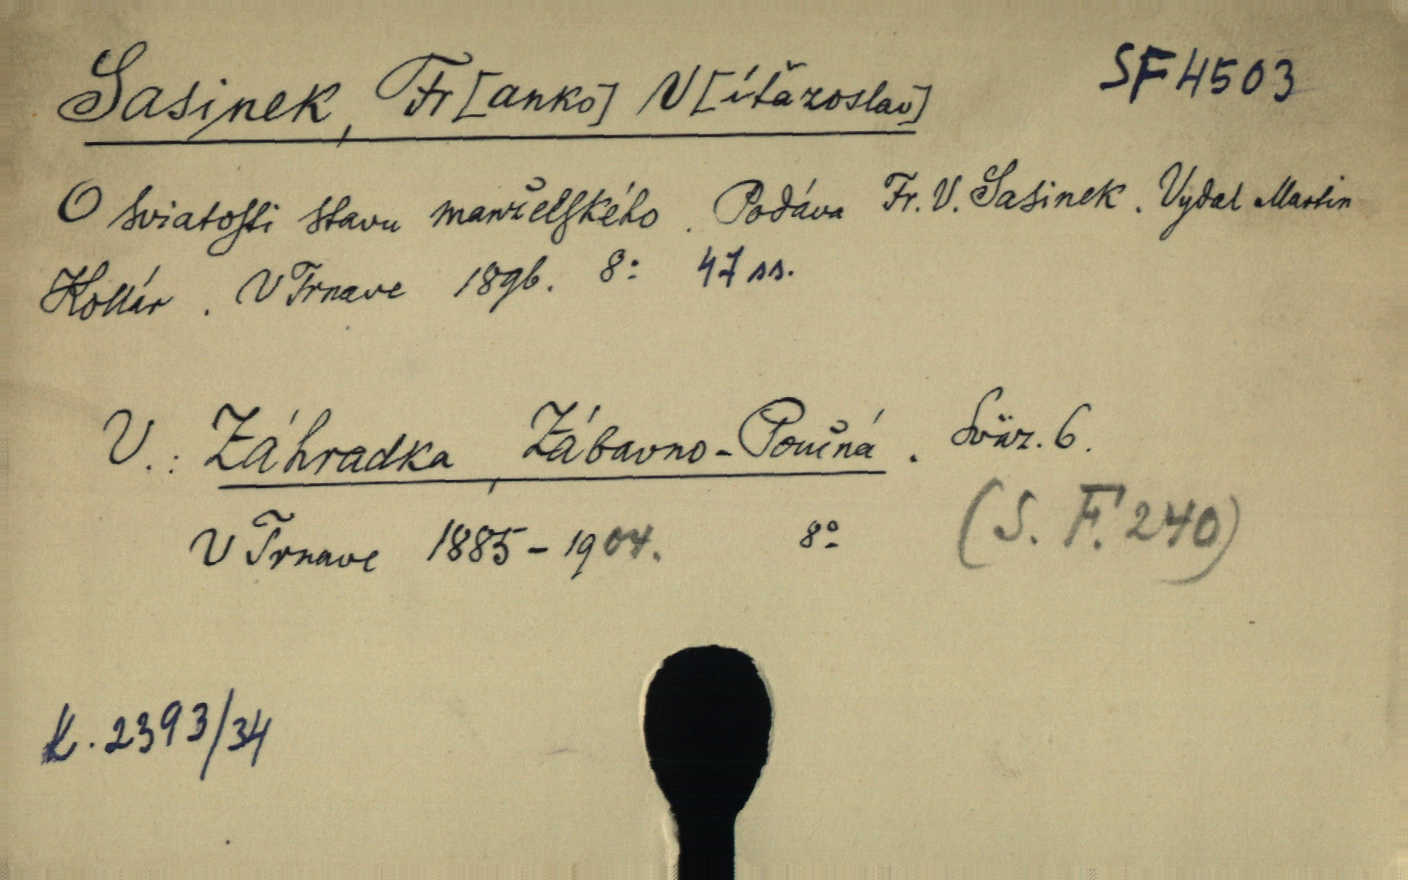 SF 4503
Sasinek, Fr[anko] V[íťazoslav]
O sviatosti stavu manželského. Podáva Fr. V. Sasinek. Vydal Martin
Kollár. V Trnave 1896. 8° 47 ss.
V.: Záhradka, Zábavno-Poučná. Sväz. 6.
(S. F. 240)
V Trnave 1885-1904. 8°
K. 2393/34